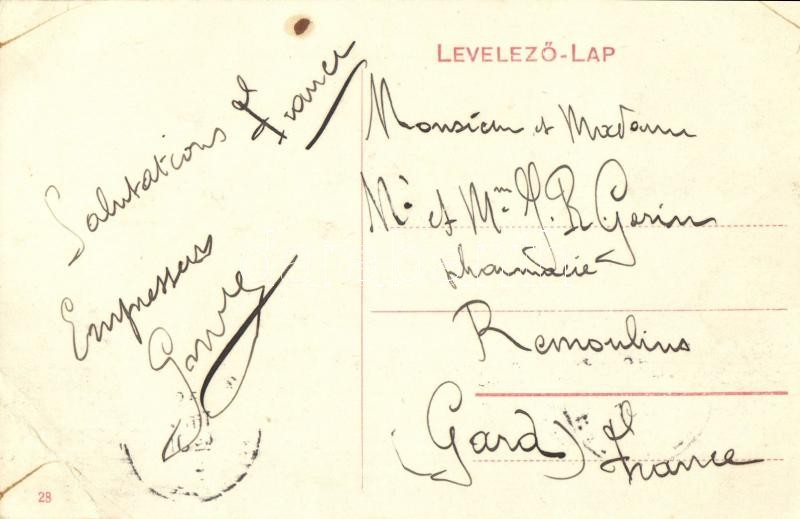 LEVELEZŐ-LAP
France
Salutations
Empressées
Monsieur et Madame
Mr et Mme J. B. Gorin
pharmacie
Remoulins
(Gard) France
28